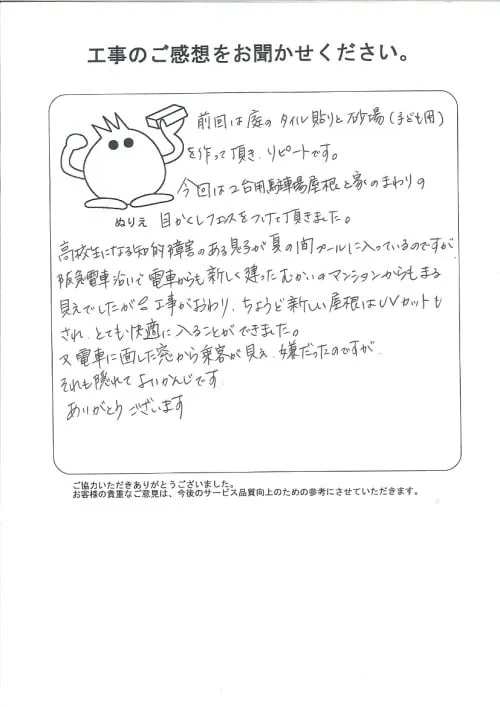 工事のご感想をお聞かせください。
前回は庭のタイル貼りと砂場(子ども用)
を作って頂き、リピートです。
今回は2台用駐車場屋根と家のまわりの
ぬりえ 目かくしフェンスをつけて頂きました。
高校生になる知的障害のある息子が夏の間プールに入っているのですが
阪急電車沿いで電車からも新しく建ったむかいのマンションからもまる
見えでしたが 工事がおわり、ちょうど新しい屋根はUVカットも
され、とても快適に入ることができました。
又電車に面した窓から乗客が見え、嫌だったのですが、
それも隠れてよいかんじです。
ありがとうございます
ご協力いただきありがとうございました。
お客様の貴重なご意見は、今後のサービス品質向上のための参考にさせていただきます。